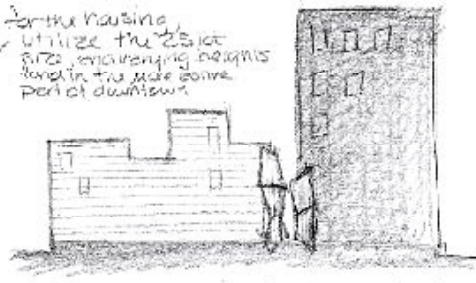 for the housing,
utilize the 25 lot
size, and varying heights
found in the more
part of downtown